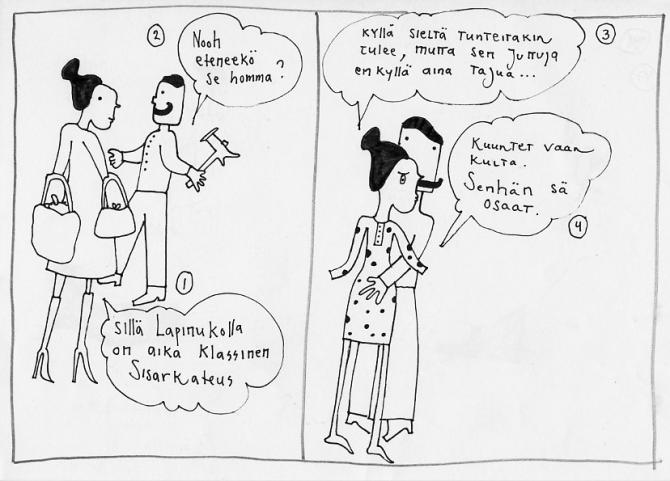 1
Sillä Lapinukolla
on aika klassinen
Sisarkateus
2
Nooh
eteneekö
se homma?
3
Kyllä sieltä tunteitakin
tulee, mutta sen juttuja
en kyllä aina tajua...
4
Kuuntet vaan
kulta.
Senhän sä
osaat.